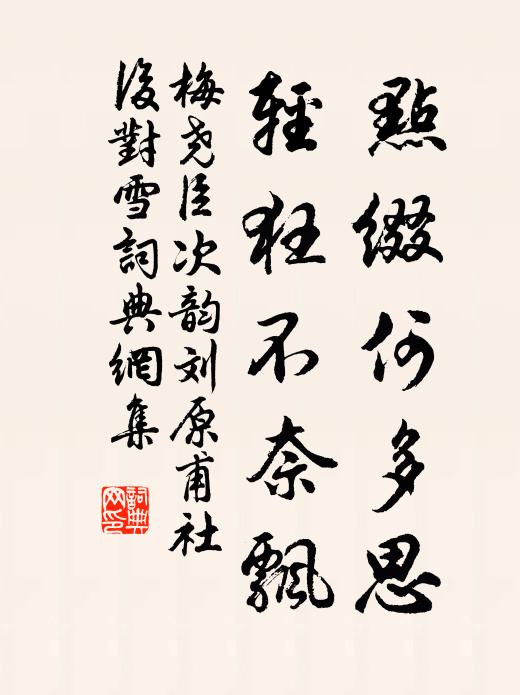 點綴何多思
輕狂不奈飄
梅尧臣次韵刘原甫社
後對雪詞典網集
詞典网印